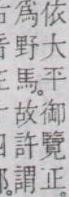 依大平御覽正
爲野馬故許謂